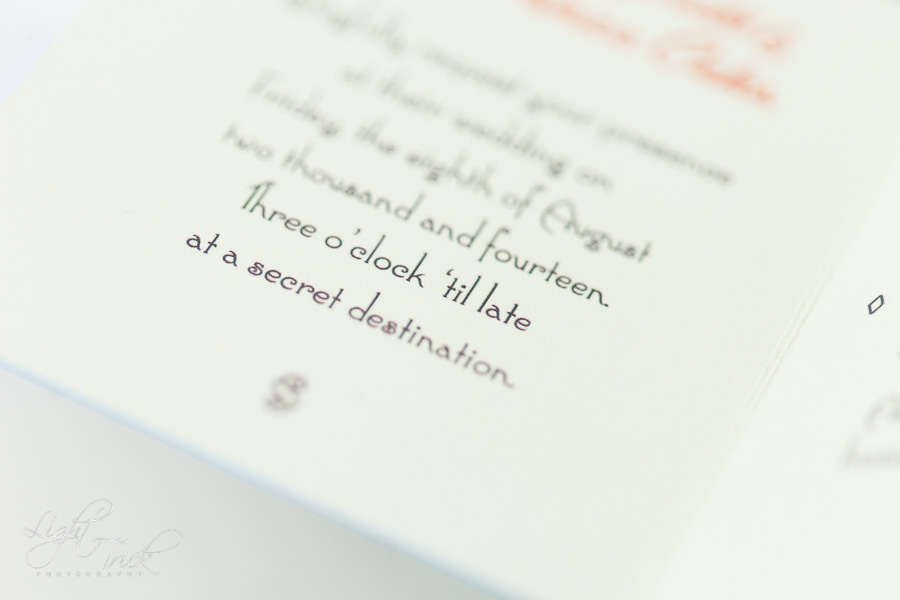 request your presence
at their wedding on
Friday the eighth of August
two thousand and fourteen.
Three o'clock 'til late
at a secret destination.
Light
trick
PHOTOGRAPHY